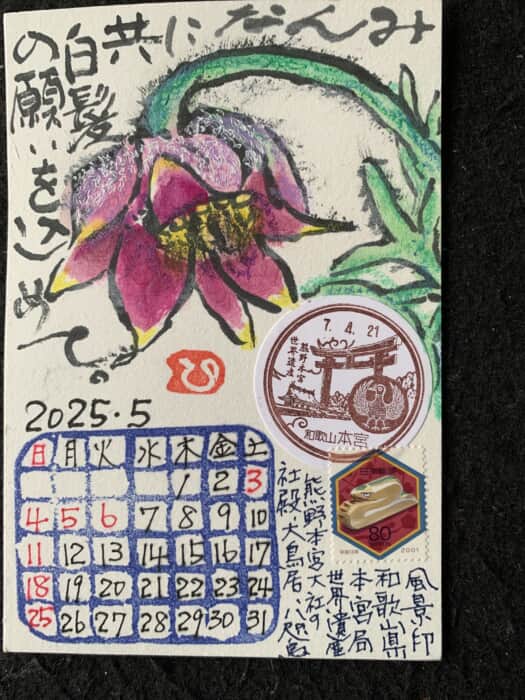 みんなに共
白髪
の願いを込めて。
ひ
7.4.21
熊野本宮
世界遺産
和歌山本宮
2025.5
日 月 火 水 木 金 土
1 2 3
4 5 6 7 8 9 10
11 12 13 14 15 16 17
18 19 20 21 22 23 24
25 26 27 28 29 30 31
80
2001
風景印
和歌山県
本宮局
世界遺産
熊野本宮大社の
社殿・大鳥居・八咫烏